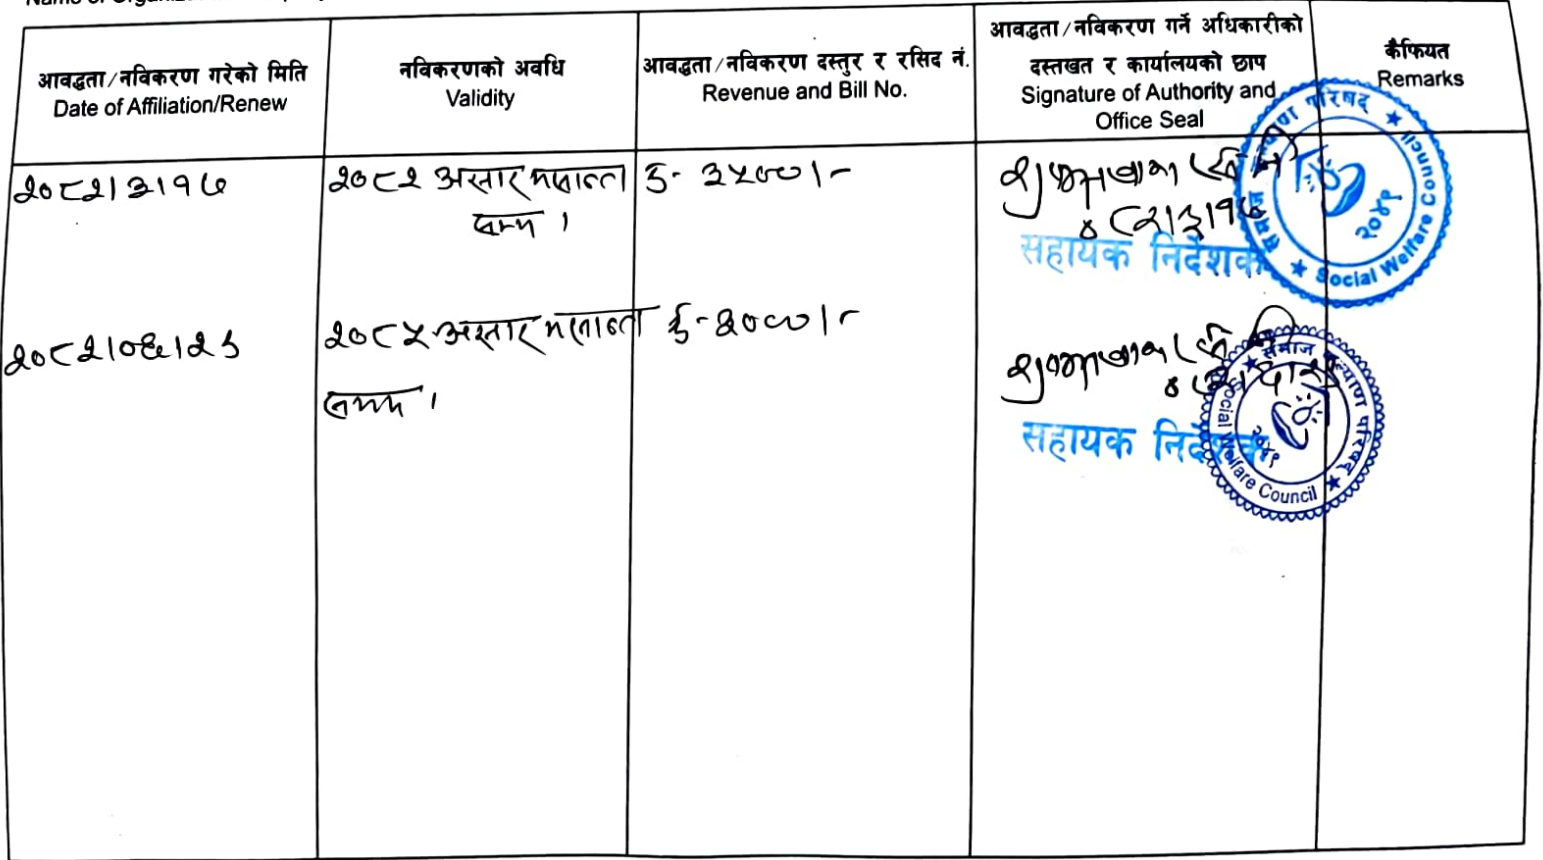 आवद्धता/नविकरण गरेको मिति
Date of Affiliation/Renew
नविकरणको अवधि
Validity
आवद्धता/नविकरण दस्तुर र रसिद नं.
Revenue and Bill No.
आवद्धता/नविकरण गर्ने अधिकारीको
दस्तखत र कार्यालयको छाप
Signature of Authority and
Office Seal
कैफियत
Remarks
२०८२।३।१७
२०८२ असार मसान्त
सम्म ।
रु- ३५००।-
८२।३।१७
सहायक निर्देशक
समाज कल्याण परिषद
Social Welfare Council
२०४९
२०८५ असार मसान्त
सम्म ।
सहायक निर्देशक
समाज कल्याण परिषद
Social Welfare Council
२०४९